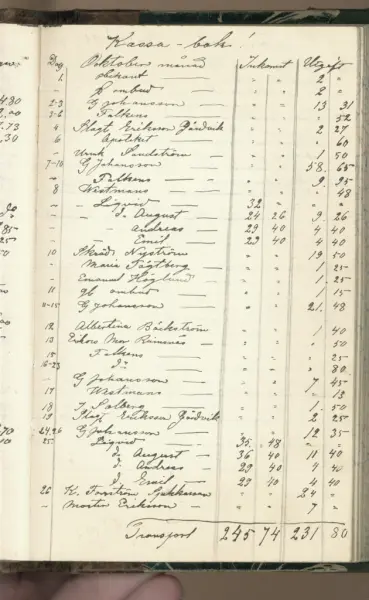 Kassa-bok!
Dag Oktober månad Inkomst Utgift
1. kont — " " 2 "
" ombud — " " 2 "
2-3 G Johansson — " " 13 31
2-6 Falkens — " " " 52
4 Slagt. Eriksson Gärdvik " " 2 27
6 Apoteket — " " " 60
- Sundström — " " 1 50
7-10 G Johansson — " " 58. 65
- Falkens — " " 9 95
8 Westmans — " " " 48
- Liqvid — 32 " " "
- d. August — 24 26 9 26
- Andreas — 29 40 4 40
- Emil — 29 40 4 40
10 Skrädd. Nyström " " 19 50
- Maria Tägtberg — " " 1 25
- Emanuel Höglund — " " 1 25
11 ombud — " " 1 15
11-15 G Johansson " " 21. 48
12 Albertina Bäckström 1 40
13 Mor — " 50
15 Falkens — " 25
16-23 do — " 80
- G Johansson — 7 45
17 Westmans — " 13
18 Solberg — 1 50
19 Slagt Eriksson Gärdvik 2 25
24,26 G Johansson — 12 35
25 Liqvid — 35. 48 " "
d. August — 36 40 11 40
d. Andreas — 29 40 4 40
d. Emil — 29 40 4 40
26 K. — 24 "
- Eriksson — 7 "
Transport 245 74 231 80